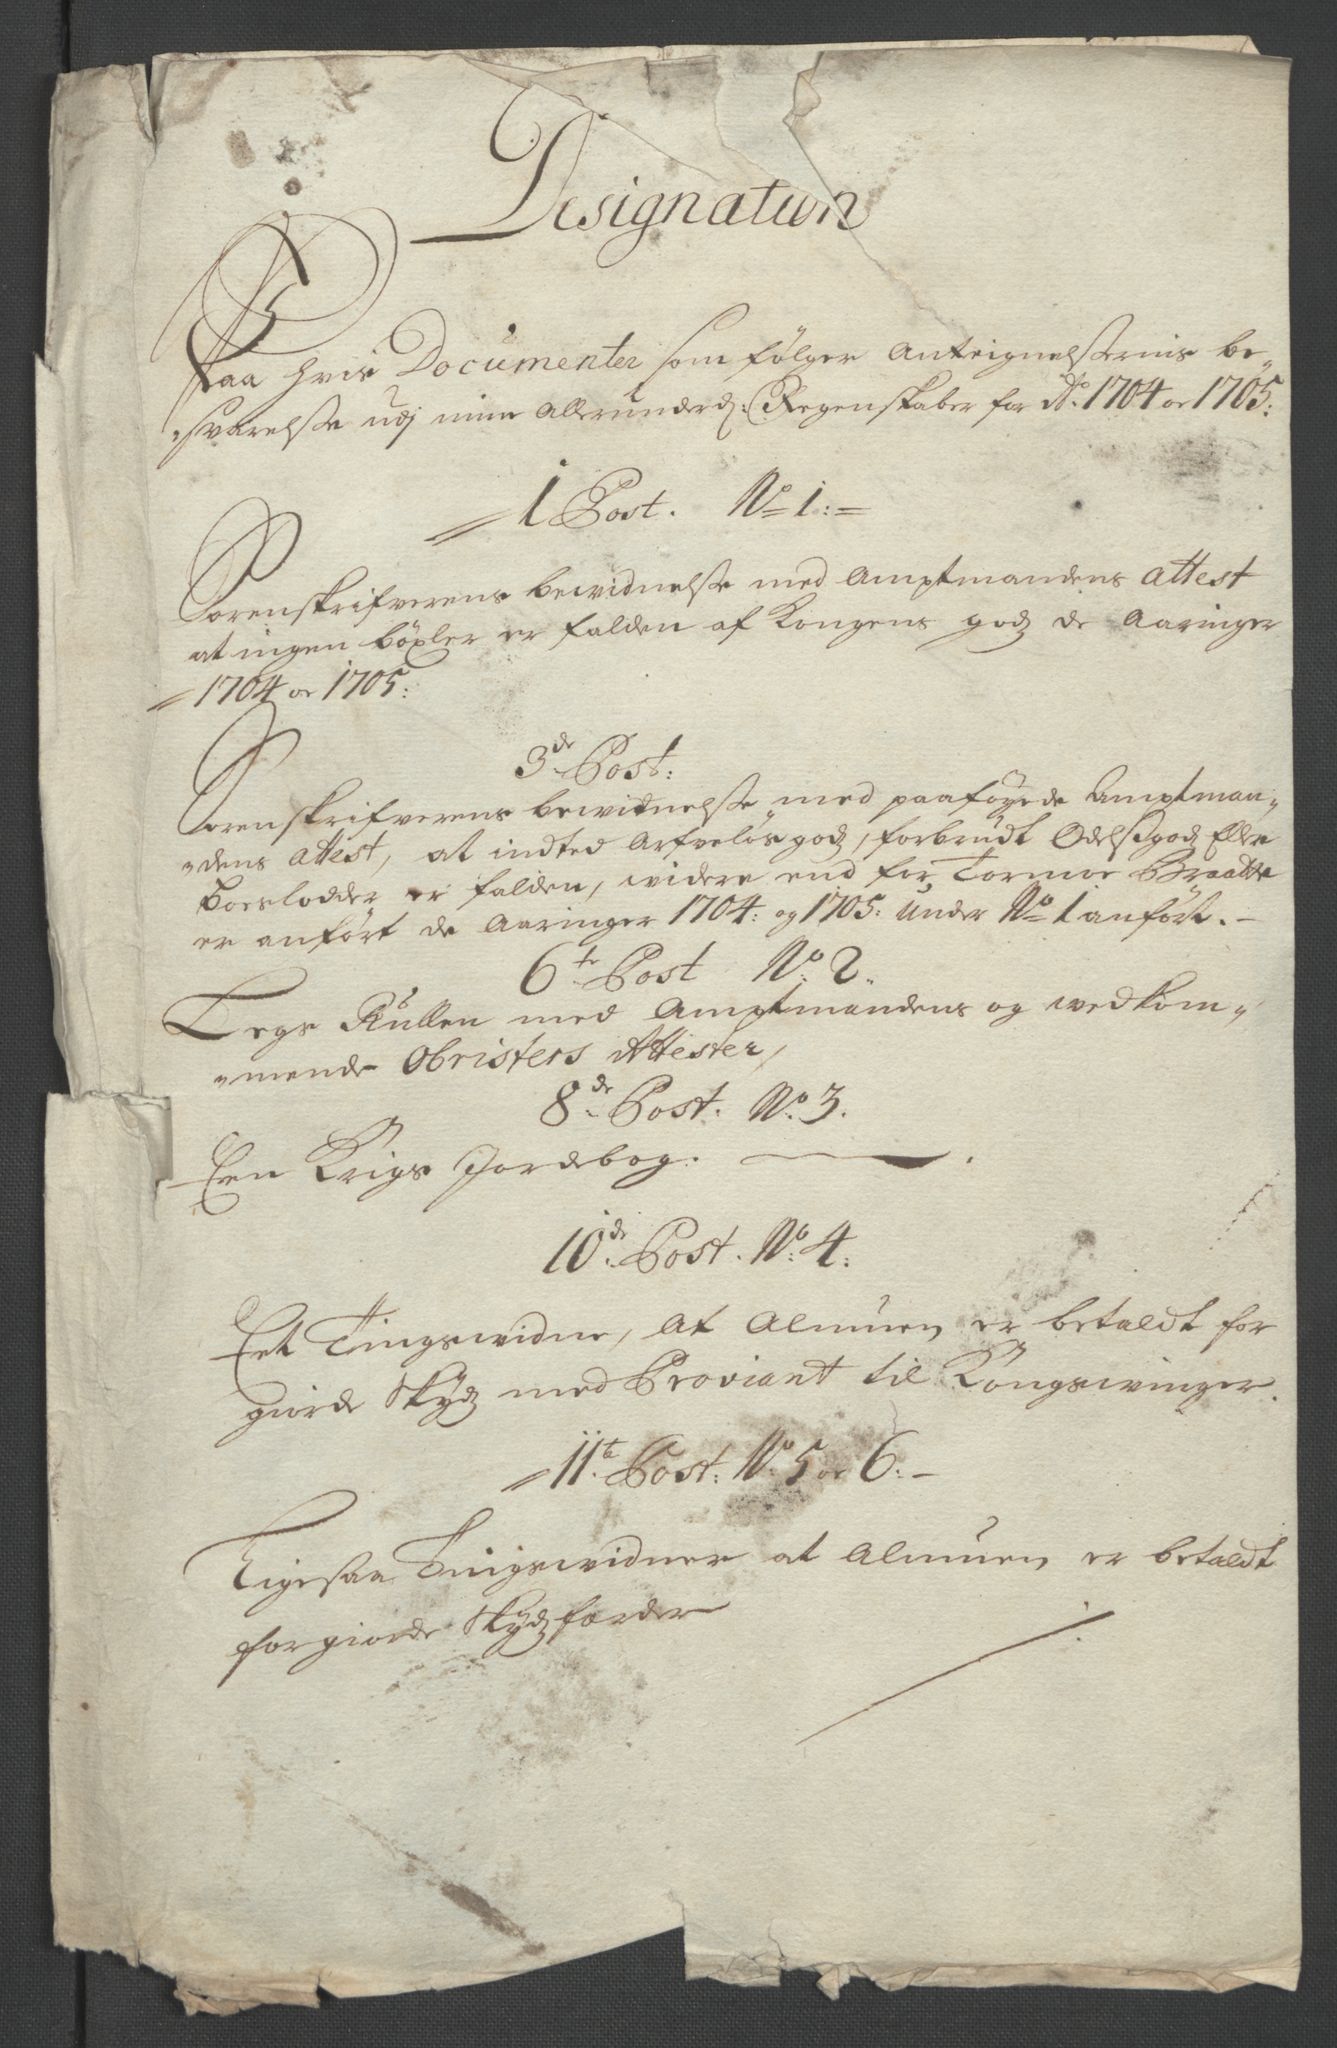 Designation
Paa hvis Documenter som følger Anteignelsernis be„
„svarelse udj mine Allerunderd: Regenskaber for Ao: 1704 oc 1705:
1 Post. No 1:
Sorenskrifverens bewidnelse med Amptmandens attest
at ingen böxler er falden af Kongens godz de Aaringer
1704 oc 1705:
3de Post:
Sorenskrifverens bewidnelse med paaføyede Amptman„
„dens attest, at indted Arfveløs godz, forbrudt Odelsgodz Eller
boeslodder er falden, widere end for Tormoe Braatte
er anført de Aaringer 1704: og 1705: under No 1 anført.
6te Post No: 2.
Legs Rullen med Amptmandens og wedkom„
„mende Obristers Attester,
8de Post. No: 3.
Een Krigs Jordebog.
10de Post. No: 4:
Eet Tingswidne, At Almuen er betaldt for
giorde Skydz med Proviant til Kongswinger.
11te Post: No: 5 oc 6:
Ligesaa Tingswidner at Almuen er betaldt
for giorde Skydzfærder